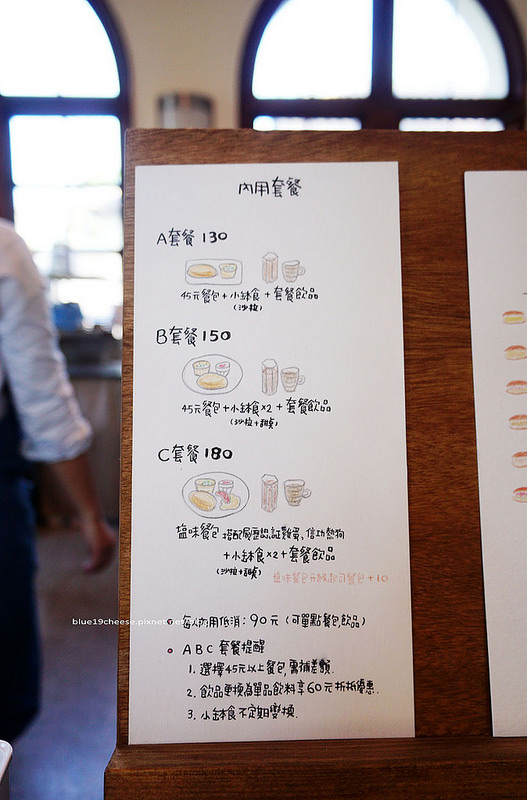 內用套餐
A套餐 130
45元餐包+小缽食+套餐飲品
(沙拉)
B套餐 150
45元餐包+小缽食x2+套餐飲品
(沙拉+甜點)
C套餐 180
鹽味餐包 搭配履歷認証雞蛋、信功熱狗
+小缽食x2+套餐飲品
(沙拉+甜點)
鹽味餐包升級起司餐包+10
每人內用低消:90元(可單點餐包,飲品)
ABC 套餐提醒
1. 選擇45元以上餐包,需補差額.
2. 飲品更換為單品飲料享60元折抵優惠.
3. 小缽食不定期變換.
blue19cheese.pixnet.net